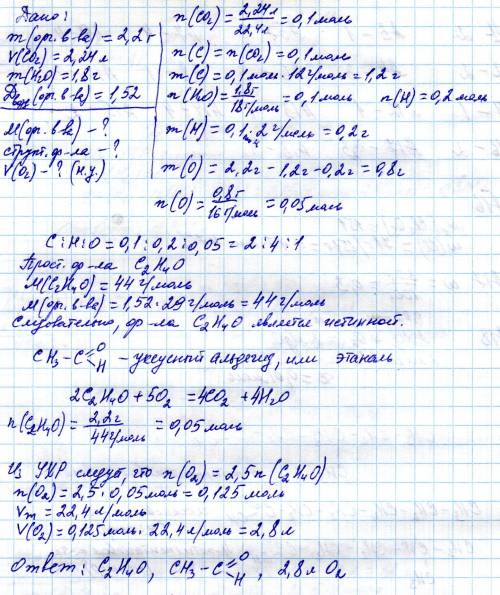 Дано:
m(орг. в-ва) = 2,2 г
V(CO₂) = 2,24 л
m(H₂O) = 1,8 г
Dвозд (орг. в-ва) = 1,52
M(орг. в-ва) - ?
структ. ф-ла - ?
V(O₂) - ? (н.у.)
n(CO₂) = 2,24 л / 22,4 л = 0,1 моль
n(C) = n(CO₂) = 0,1 моль
m(C) = 0,1 моль · 12 г/моль = 1,2 г
n(H₂O) = 1,8 г / 18 г/моль = 0,1 моль n(H) = 0,2 моль
m(H) = 0,1 · 2 г/моль = 0,2 г
m(O) = 2,2 г - 1,2 г - 0,2 г = 0,8 г
n(O) = 0,8 г / 16 г/моль = 0,05 моль
C : H : O = 0,1 : 0,2 : 0,05 = 2 : 4 : 1
Прост. ф-ла C₂H₄O
M(C₂H₄O) = 44 г/моль
M(орг. в-ва) = 1,52 · 29 г/моль = 44 г/моль
Следовательно, ф-ла C₂H₄O является истинной.
CH₃ - C =O H - уксусный альдегид, или этаналь
2C₂H₄O + 5O₂ = 4CO₂ + 4H₂O
n(C₂H₄O) = 2,2 г / 44 г/моль = 0,05 моль
Из УХР следует, что n(O₂) = 2,5 n(C₂H₄O)
n(O₂) = 2,5 · 0,05 моль = 0,125 моль
Vm = 22,4 л/моль
V(O₂) = 0,125 моль · 22,4 л/моль = 2,8 л
Ответ: C₂H₄O, CH₃ - C =O H, 2,8 л O₂